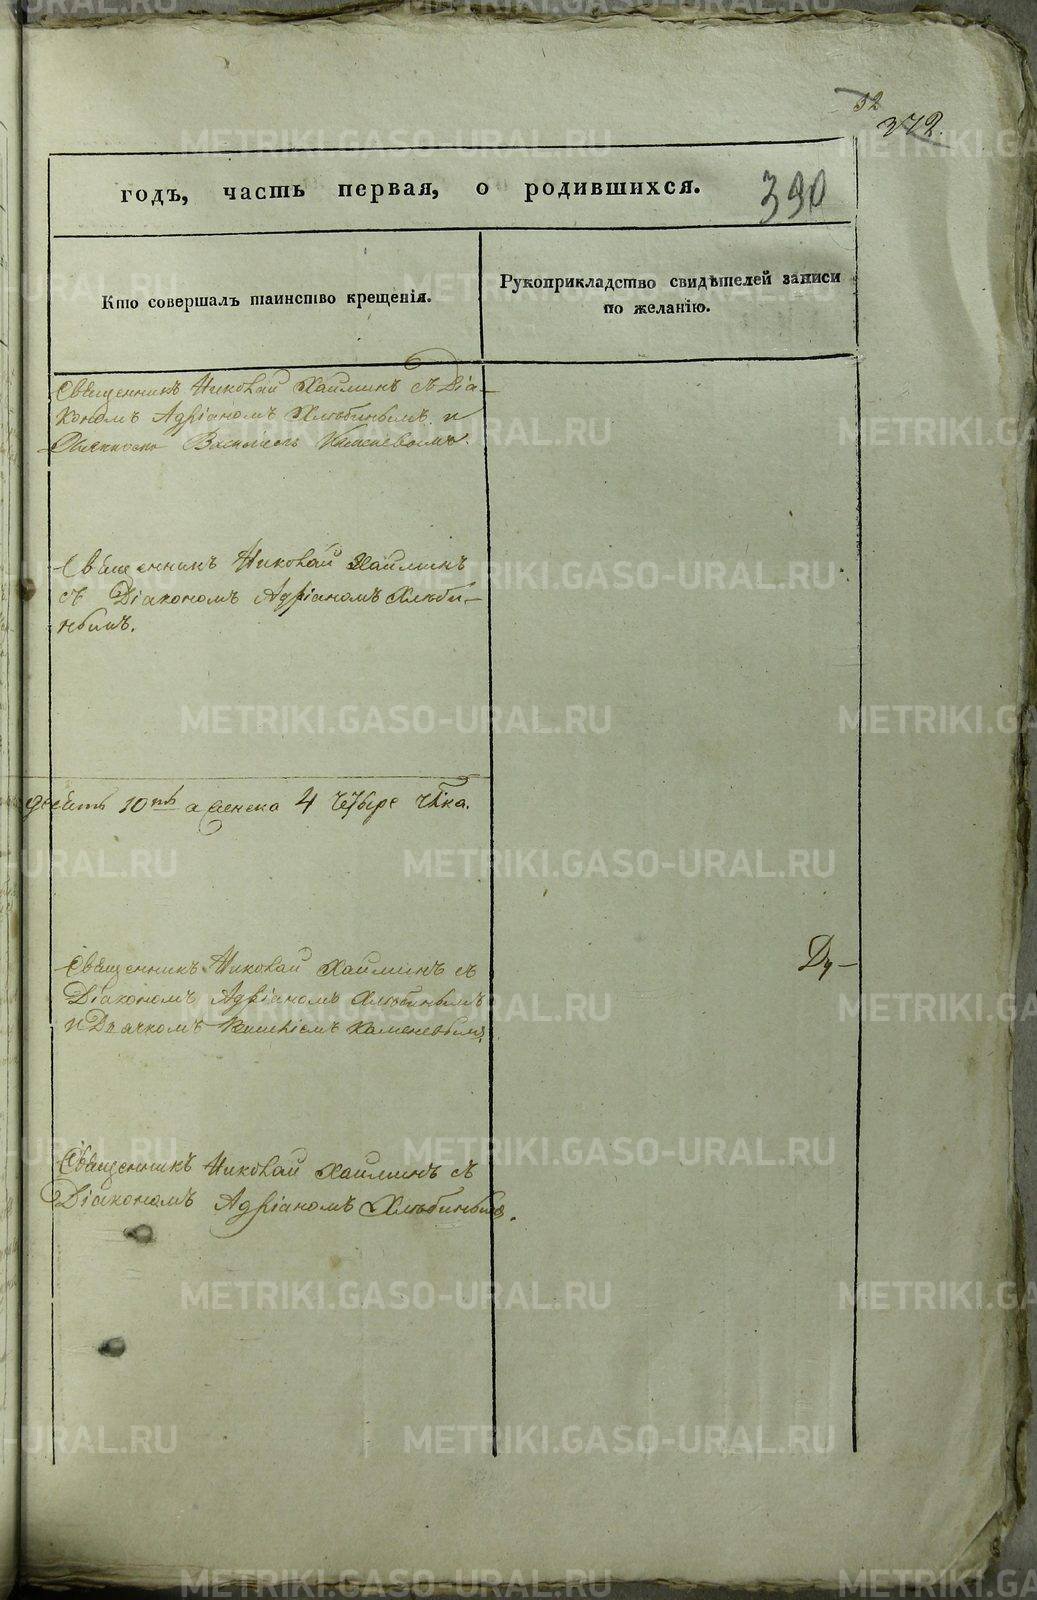 52
372.
годъ, часть первая, о родившихся.
390
Кто совершалъ таинство крещенія.
Рукоприкладство свидѣтелей записи
по желанію.
Священникъ Николай Хаймин съ Діа-
кономъ Адріаномъ Хлѣбинымъ и
Василіемъ Каменевымъ.
Священникъ Николай Хайминъ
съ Діакономъ Адріаномъ Хлѣби-
нымъ.
десять 10ть а женска 4 четыре
Священникъ Николай Хайминъ съ
Діакономъ Адріаномъ Хлѣбинымъ
и Дьячкомъ Каменевымъ
Ду-
Священникъ Николай Хайминъ съ
Діакономъ Адріаномъ Хлѣбинымъ.
METRIKI.GASO-URAL.RU